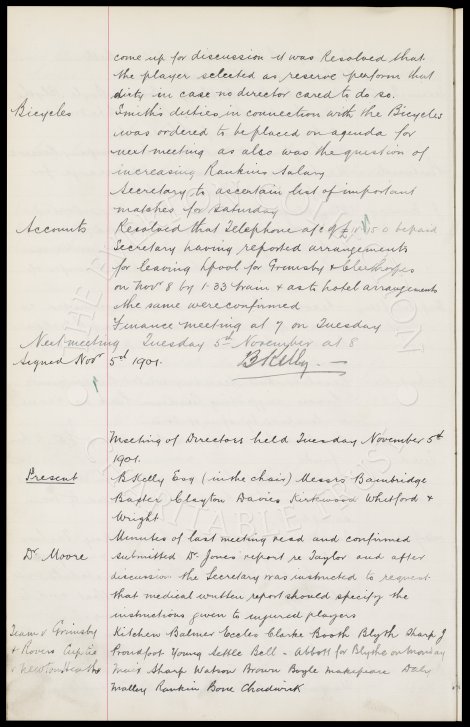 come up for discussion it was Resolved that
the player selected as reserve perform that
duty in case no director cared to do so.
Bicycles Smith's duties in connection with the Bicycles
was ordered to be placed on agenda for
next meeting as also was the question of
increasing Rankins Salary
Secretary to ascertain list of important
matches for Saturday
Accounts Resolved that Telephone a/c of £ be paid
Secretary having reported arrangements
for leaving Lpool for Grimsby & Cleethorpes
on Novr 8 by 1.33 train & as to hotel arrangements
the same were confirmed
Finance meeting at 7 on Tuesday
Next meeting Tuesday 5th November at 8
Signed Novr 5th 1901. B Kelly
Meeting of Directors held Tuesday November 5th
1901.
Present B Kelly Esq (in the chair) Messrs Bainbridge
Baxter Clayton Davies Kirkwood Whitford &
Wright
Minutes of last meeting read and confirmed
Dr Moore Submitted Dr Jones report re Taylor and after
discussion the Secretary was instructed to request
that medical written report should specify the
instructions given to injured players
Team v Grimsby Kitchen Balmer Eccles Clarke Booth Blyth Sharp J
& Rovers Cup tie Proudfoot Young Settle Bell - Abbott for Blyth on Monday
& Newton Heath Muir Sharp Watson Brown Boyle Makepeace Daly
Mallory Rankin Bone Chadwick